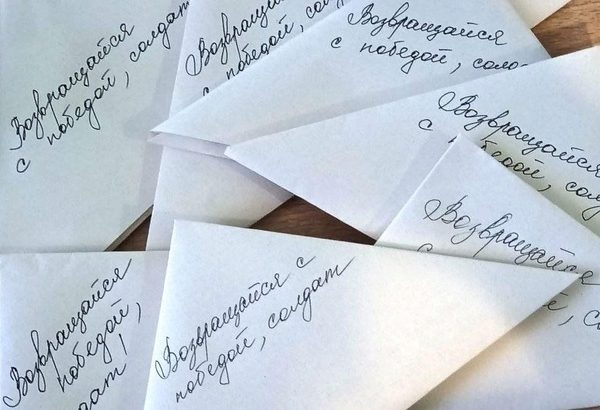 Возвращайся
с победой, солдат
Возвращайся
с победой,
Возвращайся
с победой,
Возвращайся
с победой,
Возвращайся
Возвращайся с
победой, солдат
Возвращайся
победой,
солдат!